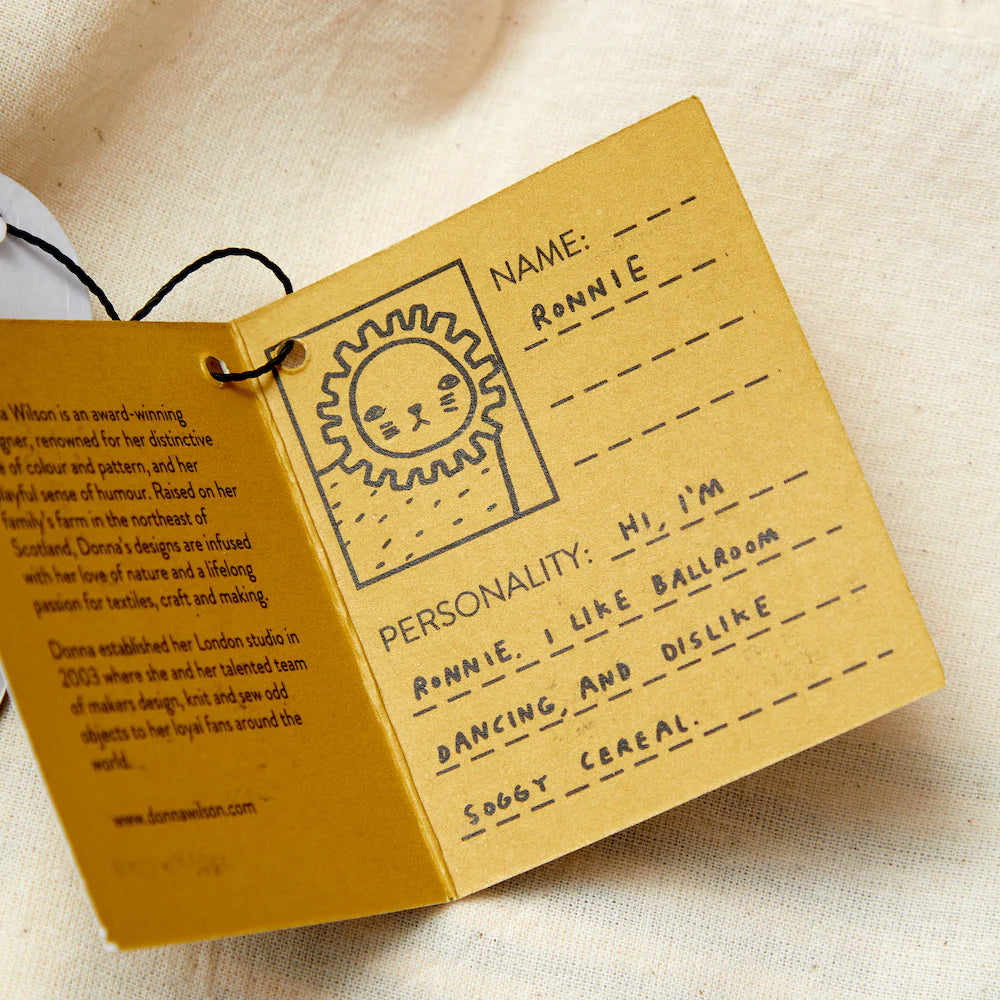 a Wilson is an award-winning
gner, renowned for her distinctive
e of colour and pattern, and her
layful sense of humour. Raised on her
family's farm in the northeast of
Scotland, Donna's designs are infused
with her love of nature and a lifelong
passion for textiles, craft and making.
Donna established her London studio in
2003 where she and her talented team
of makers design, knit and sew odd
objects to her loyal fans around the
world.
www.donnawilson.com
NAME:
RONNIE
PERSONALITY: HI, I'M
RONNIE. I LIKE BALLROOM
DANCING, AND DISLIKE
SOGGY CEREAL.